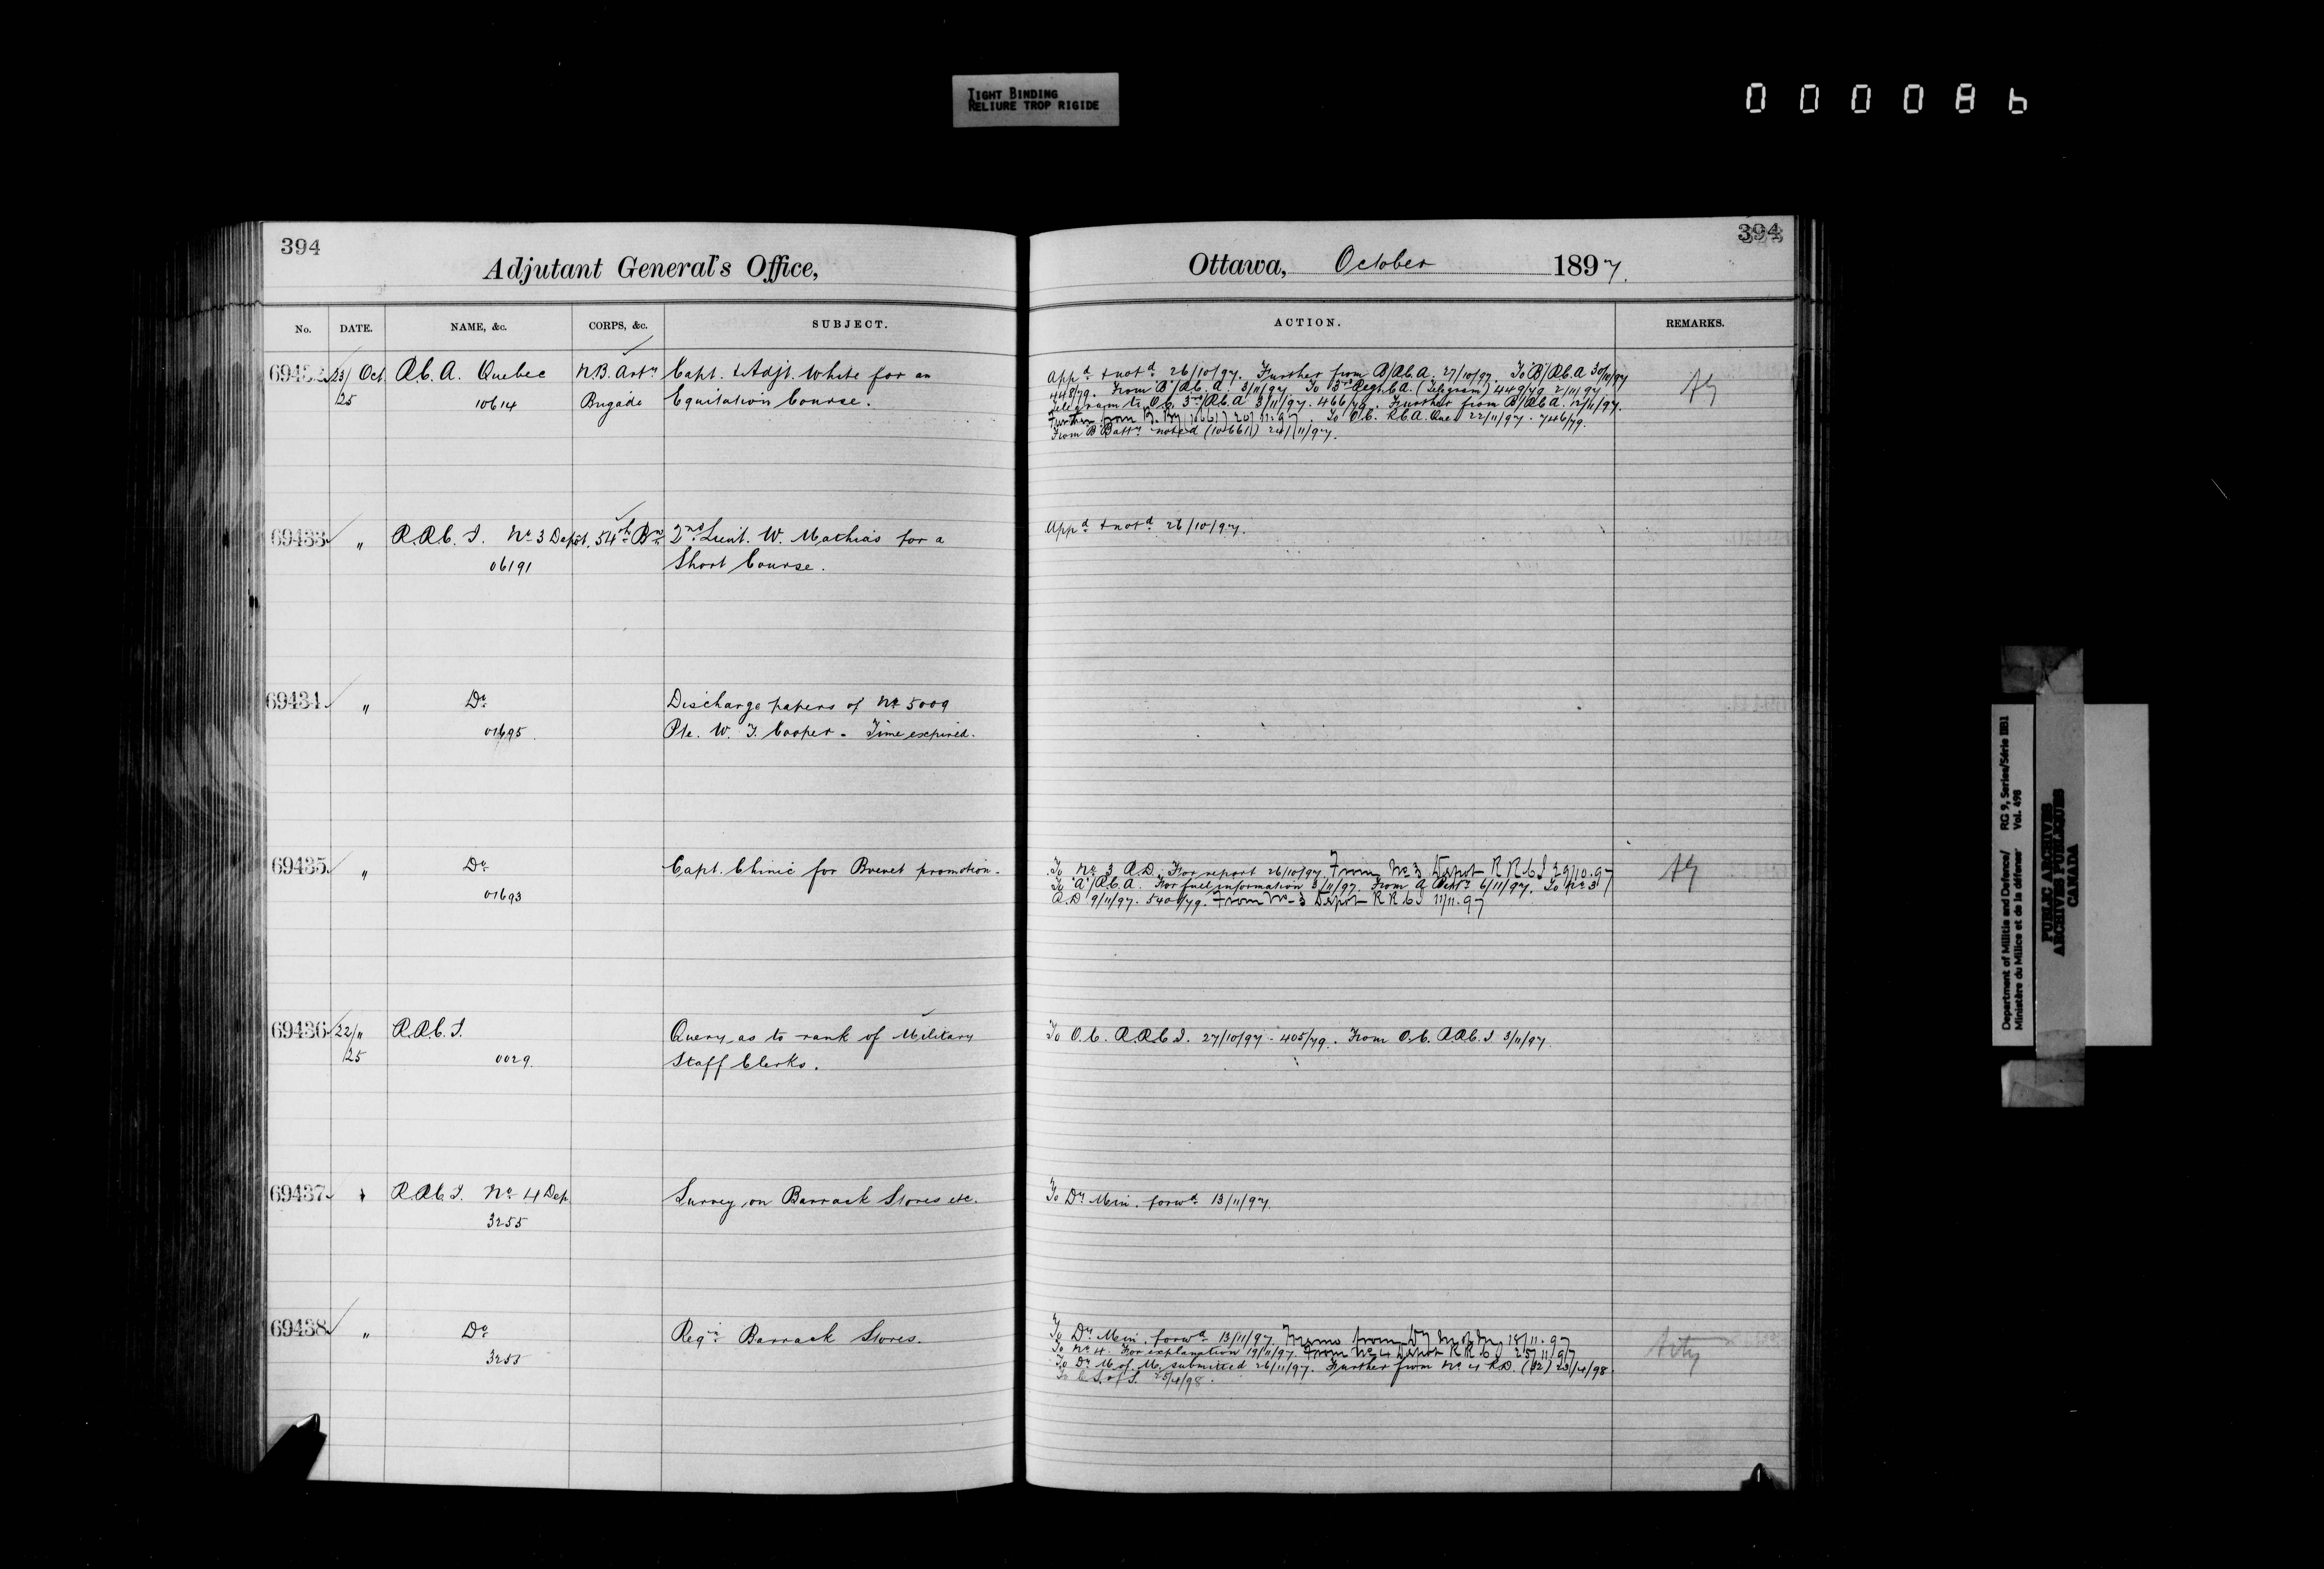 TIGHT BINDING
RELIURE TROP RIGIDE
0000086
394
Adjutant General's Office,
Ottawa, October 1897.
394
No. DATE. NAME, &c. CORPS, &c. SUBJECT. ACTION. REMARKS.
69432 23/ Oct R.C.A. Quebec N.B. Arty Capt. & Adjt. White for an
25 10614 Brigade Equitation Course.
Appd & notd 26/10/97. Further from B/R.C.A. 27/10/97. To B/R.C.A 30/10/97
448/79. From "B" R.C.A. 3/11/97 To 3rd Regt C.A. (Telegram) 449/79 2/11/97
Telegram to O.C. 3rd/R.C.A 3/11/97. 466/79. Further from B/R.C.A. 12/11/97.
Further from 20.11.97. To O.C. R.C.A. Que 22/11/97. 746/79.
From B Batty noted (10661) 24/11/97.
69433 " R.R.C.I. No 3 Depot. 54th Bn 2nd Lieut. W. Mathias for a
06191 Short Course.
Appd & notd 26/10/97.
69434 " Do Discharge papers of No 5009
01695 Pte. W. J. Cooper - Time expired.
69435 " Do Capt. Chinic for Brevet promotion.
01693
To No 3 R.D. For report 26/10/97. From No 3 Depot R R C I 29/10.97
To "A"/R.C.A. For full information 3/11/97. From A Batty 6/11/97. To No 3
R.D 9/11/97. 540/79. From No 3 Depot R R C I 11/11.97
69436 22/ " R.R.C.I. Query as to rank of Military
25 0029. Staff Clerks.
To O.C. R.R.C.I. 27/10/97 - 405/79. From O.C. R.R.C.I 3/11/97.
69437 " R.R.C.I. No 4 Dep Survey on Barrack Stores etc.
3255
To Dy Min. forwd 13/11/97.
69438 " Do Reqn Barrack Stores.
3255
To Dy Min. forwd 13/11/97 Memo from Dy M of M 18/11.97
To No 4. For explanation 19/11/97. From No 4 Depot R R C I 25/11/97
To Dy M of M, submitted 26/11/97. Further from No 4 R.D. (32) 23/4/98.
To C.S. of S. 25/4/98.
Department of Militia and Defence/ RG 9, Series/Série IIB1
Ministère du Milice et de la défense Vol. 498
PUBLIC ARCHIVES
ARCHIVES PUBLIQUES
CANADA